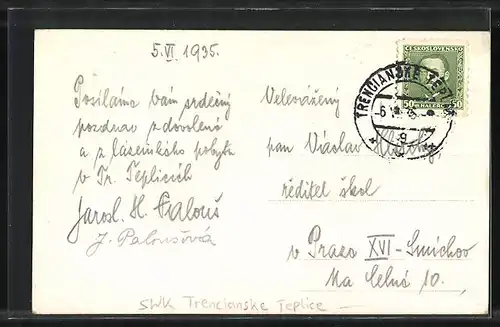 5.VI 1935.
Posíláme Vám srdečný
pozdrav z dovolené
a z lázeňského pobytu
v Tr. Teplicích
Jarosl. H. Palouš
J. Paloušová
Velevážený
pan Václav
ředitel škol
v Praze XVI - Smíchov
Na Celné 10.
ČESKOSLOVENSKO
50 HALÉŘŮ 50
TRENČIANSKE TEPLICE
-6.
9
SWK Trencianske Teplice